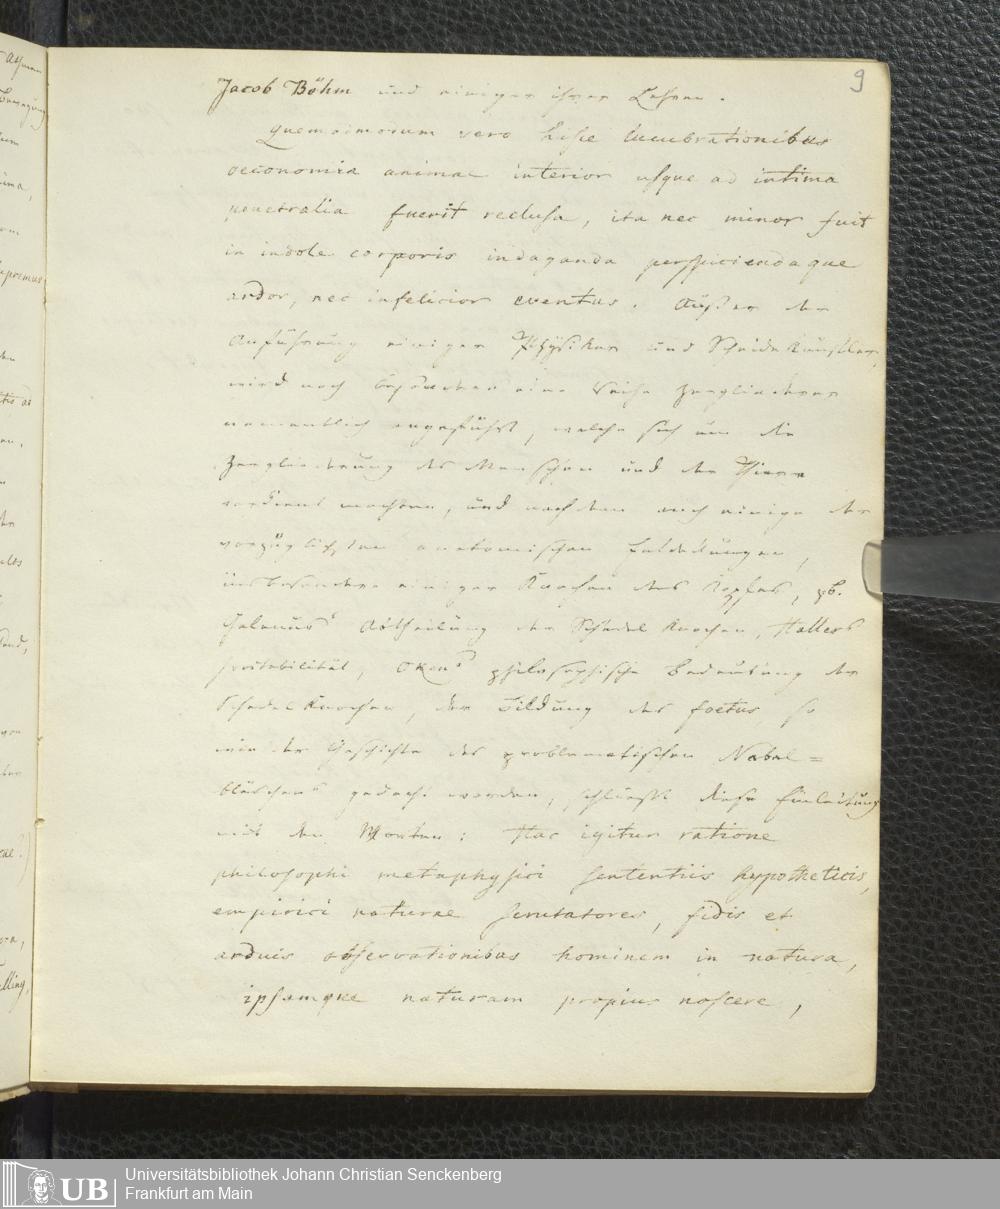 9
Jacob Böhm und einiger ihrer Lehren.
Quemadmodum vero hisce lucubrationibus
oeconomia animae interior usque ad intima
penetralia fuerit reclusa, ita nec minor fuit
in indole corporis indaganda perspiciendaque
ardor, nec infelicior eventus. Außer der
Anführung einiger Physiker und Scheidekünstler,
wird noch besonders eine Reihe Zergliederer
namentlich angeführt, welche sich um die
Zergliederung des Menschen und der Thiere
verdient machten, und nachdem auch einige der
vorzüglichsten anatomischen Entdekungen,
insbesondere einiger Knochen des Kopfes, zb.
Galenus' Abtheilung der Schädel Knochen, Hallers
Irritabilität, Okens philosophische Bedeutung der
Schedel Knochen, der Bildung des foetus, so
wie der Geschichte des problematischen Nabel=
bläschens gedacht worden, schliesst diese Einleitung
mit den Worten: Hac igitur ratione
philosophi metaphysici sententiis hypotheticis,
empirici naturae scrutatores, fidis et
arduis observationibus hominem in natura,
ipsamque naturam propius noscere,
Universitätsbibliothek Johann Christian Senckenberg
Frankfurt am Main
UB